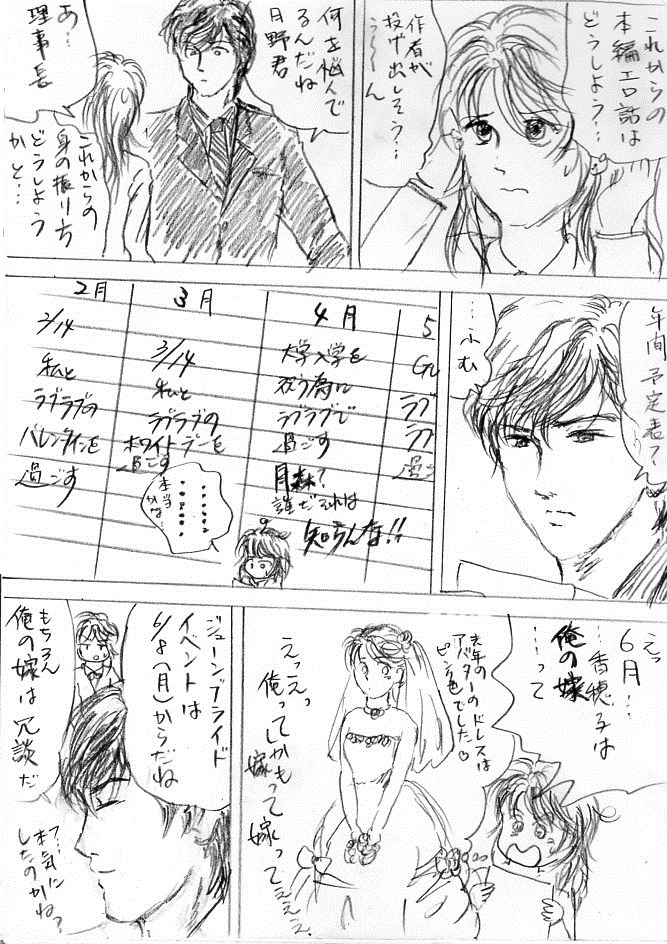 これからの
本編エロ話は
どうしよう…
作者が
投げ出しそう…
う～～ん
何を悩んで
るんだね
日野君
あ…
理事長
これからの
身の振り方
どうしよう
かと…
年間予定表？
…ふむ
2月
2/14
私と
ラブラブの
バレンタインを
過ごす
3月
3/14
私と
ラブラブの
ホワイトデーを
過ごす
4月
大学入学を
祝う為に
ラブラブで
過ごす
月森？
誰だそれは
知らんな!!
5
GW
ラブ
ラブ
過ご
……
……
本当
かな…
えっ
6月…
…香穂子は
俺の嫁
…って
去年の
アバターのドレスは
ピンク色でした♡
えっえっ
俺ってしかもって
嫁って嫁ってえええ
ジューンブライド
イベントは
6/8(月)からだね
もちろん
俺の嫁は冗談だ
フ…
本気に
したのかね？